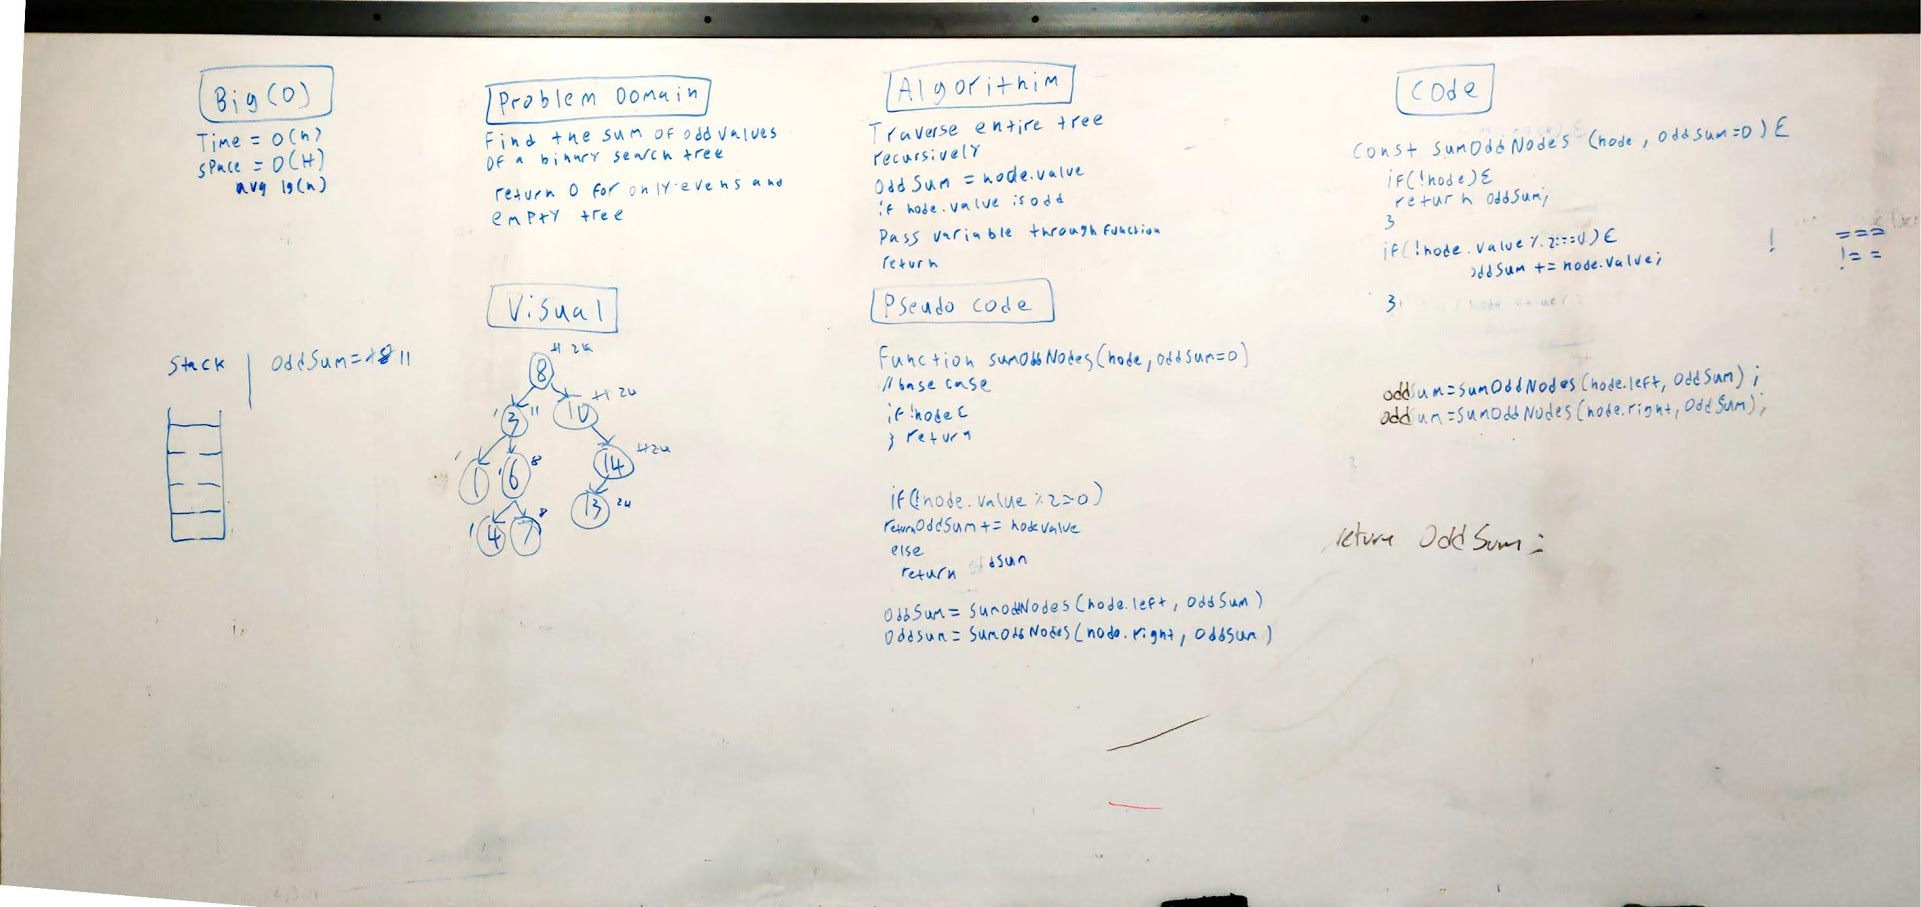 Big(O)
Time = O(n)
space = O(H)
avg lg(n)
Problem Domain
Find the sum of odd values
of a binary search tree
return 0 for only-evens and
empty tree
Visual
Stack
oddSum=
11
8
3
11
10
1
6
8
14
4
7
8
13
24
Algorithim
Traverse entire tree
recursively
oddSum = node.value
if node.value is odd
Pass variable through function
return
Pseudo code
Function sumOddNodes(node, oddSum=0)
// base case
if !node {
} return
if(!node.value % 2 = 0)
return oddSum += node value
else
return
oddSum = sumOddNodes(node.left, oddSum)
oddSum = sumOddNodes(node.right, oddSum)
Code
const sumOddNodes (node, oddSum=0) {
if(!node){
return oddSum;
}
if(!node.value % 2===0) {
oddSum += node.value;
}
oddSum=sumOddNodes(node.left, oddSum);
oddSum=sumOddNodes(node.right, oddSum);
return oddSum;
!
===
!==